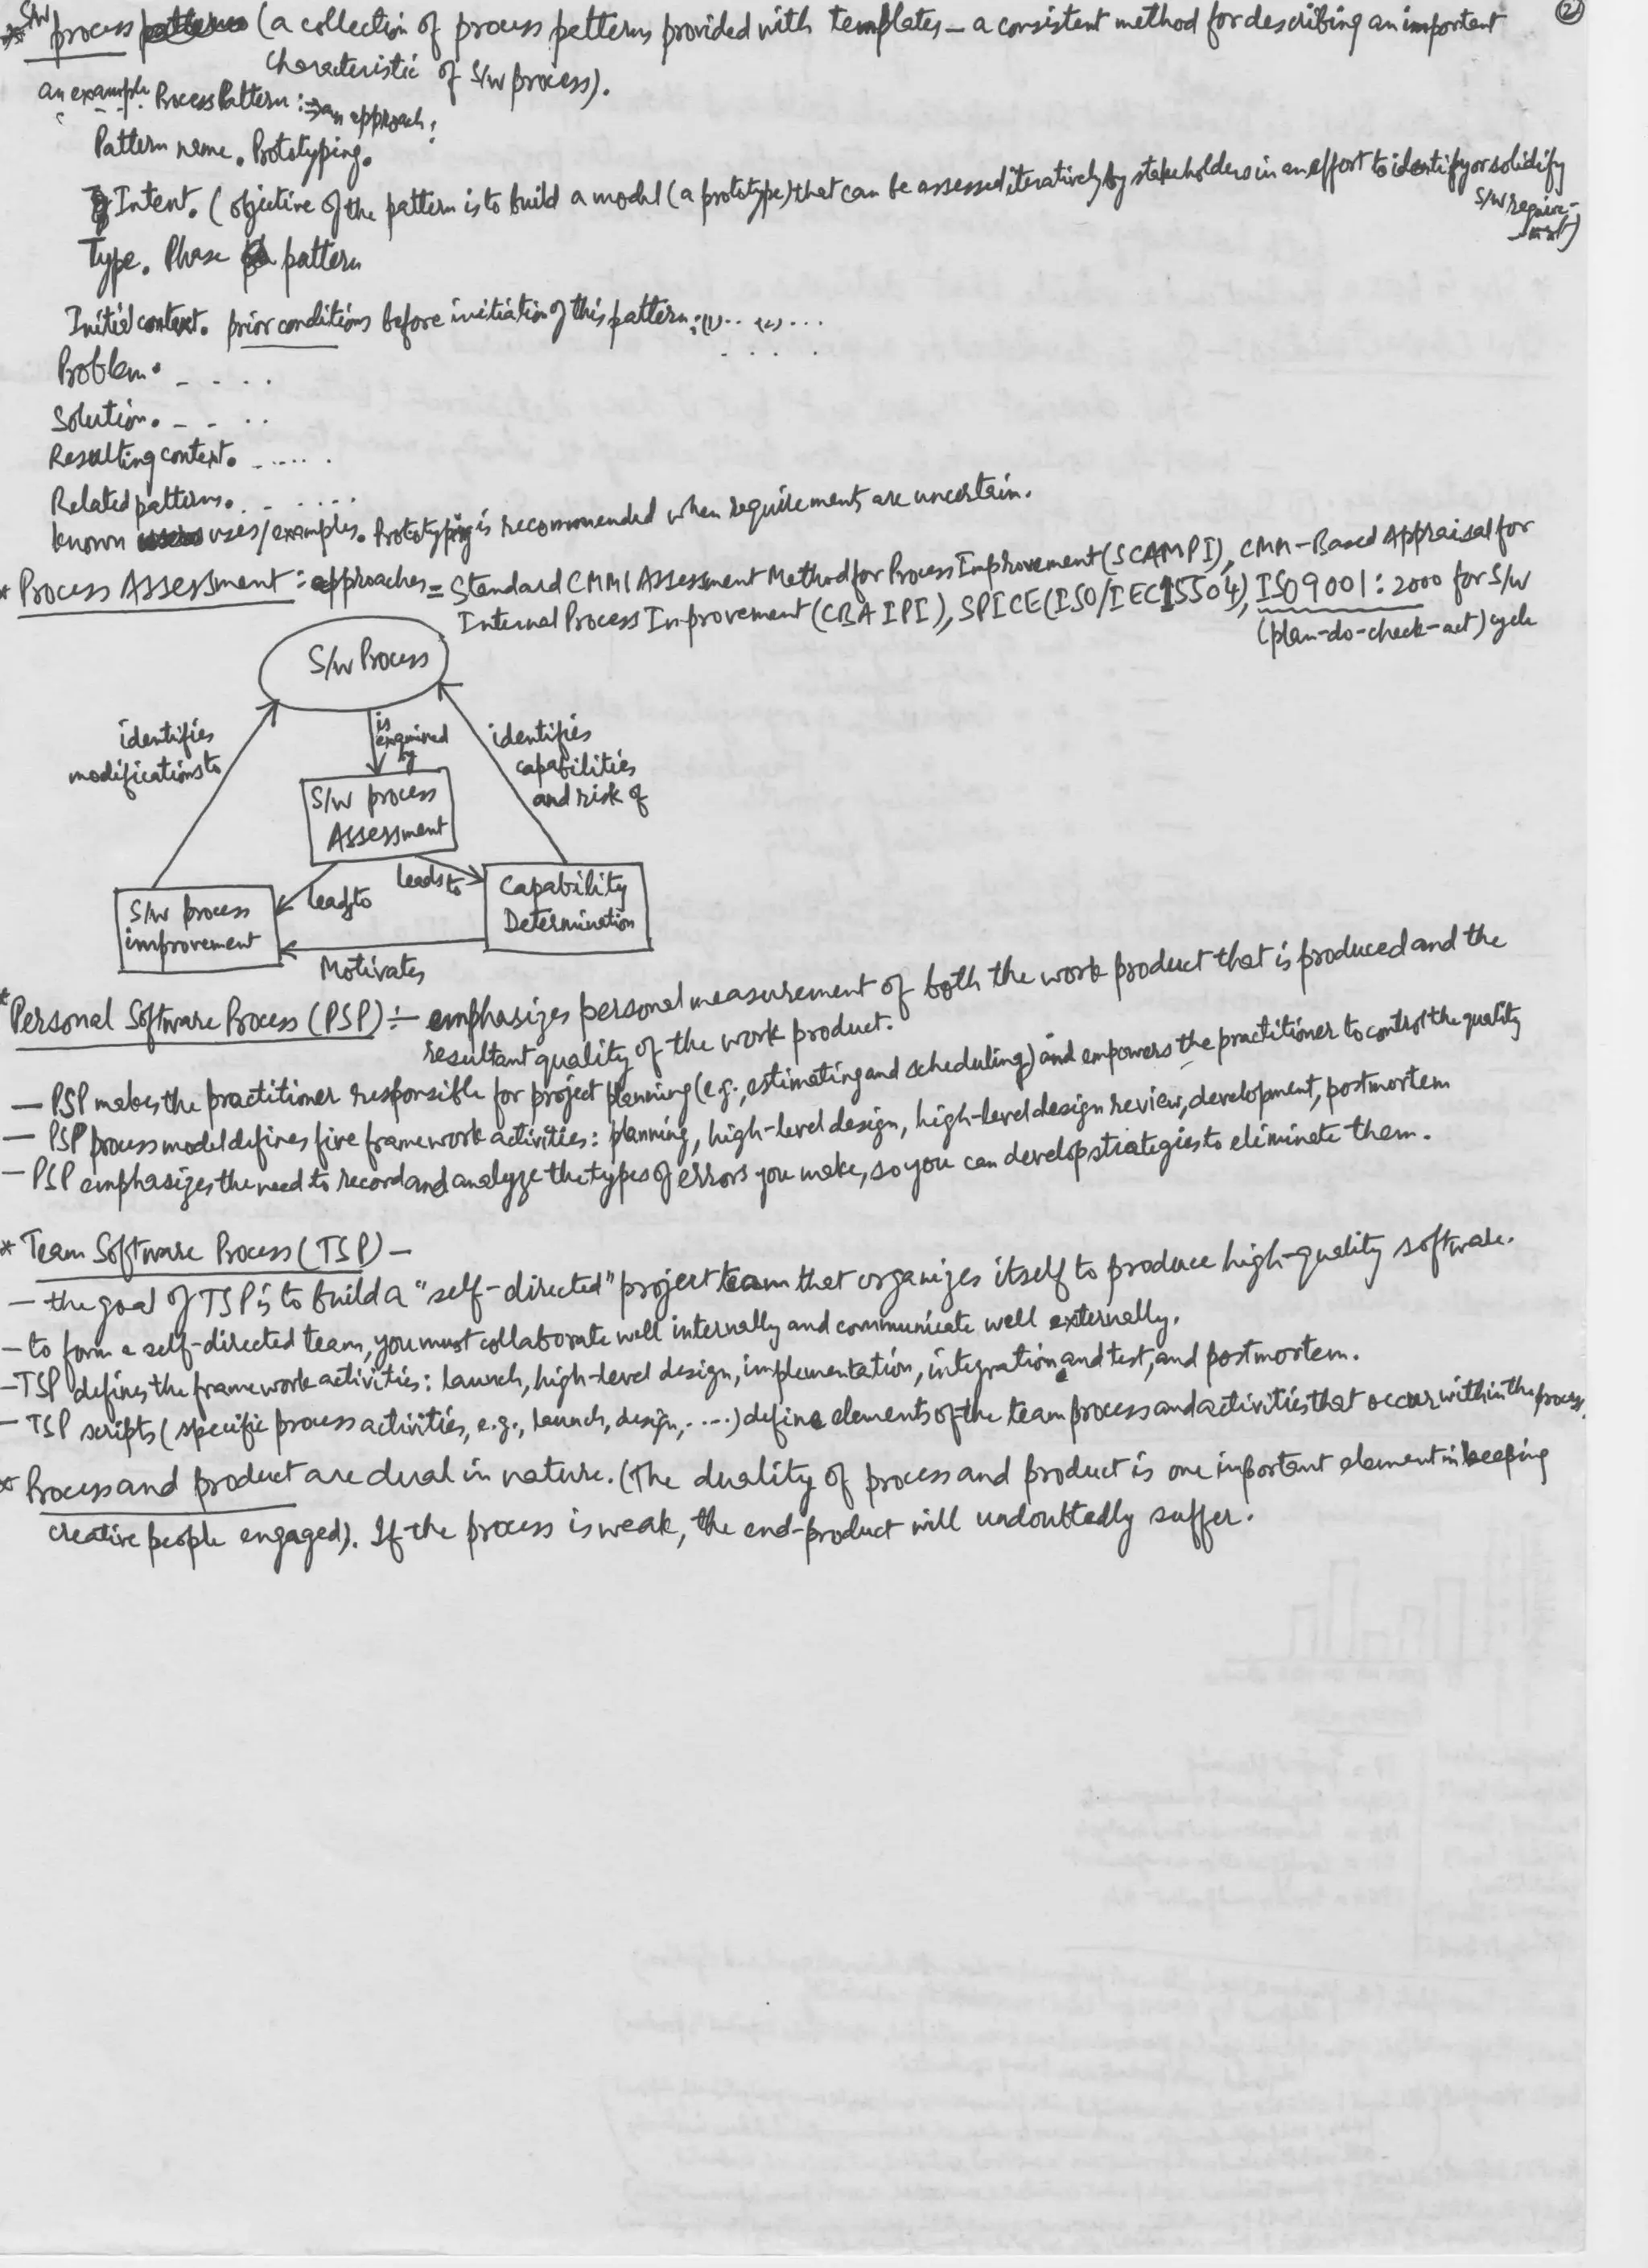 ②
* S/W process (a collection of process patterns provided with templates – a consistent method for describing an important
characteristic of S/W process).
an example Process Pattern: ⇒ an approach:
Pattern name. Prototyping.
Intent. (objective of the pattern is to build a model (a prototype) that can be assessed iteratively by stakeholders in an effort to identify or solidify
S/W require-
-ment)
Type. Phase pattern
Initial context. prior conditions before initiation of this pattern: (1)... (2)...
. . . .
Problem. - . . .
Solution. - - . .
Resulting context. ......
Related patterns. .......
Known uses/examples. Prototyping is recommended when requirements are uncertain.
* Process Assessment: approaches = Standard CMMI Assessment Method for Process Improvement (SCAMPI), CMM-Based Appraisal for
Internal Process Improvement (CBA IPI), SPICE (ISO/IEC 15504), ISO 9001:2000 for S/W
(plan-do-check-act) cycle
S/W Process
identifies
modifications to
is
exquired
by
identifies
capabilities
and risk of
S/W process
Assessment
leads to
leads to
S/W process
improvement
Capability
Determination
Motivates
* Personal Software Process (PSP) :– emphasizes personal measurement of both the work product that is produced and the
resultant quality of the work product.
– PSP makes the practitioner responsible for project planning (e.g., estimating and scheduling) and empowers the practitioner to control the quality
– PSP process model defines five framework activities: planning, high-level design, high-level design review, development, postmortem
– PSP emphasizes the need to record and analyze the types of errors you make, so you can develop strategies to eliminate them.
* Team Software Process (TSP) –
– the goal of TSP is to build a "self-directed" project team that organizes itself to produce high-quality software.
– to form a self-directed team, you must collaborate well internally and communicate well externally.
– TSP defines the framework activities: launch, high-level design, implementation, integration and test, and postmortem.
– TSP scripts (specific process activities, e.g., launch, design, ....) define elements of the team process and activities that occur within the process.
* Process and product are dual in nature. (The duality of process and product is one important element in keeping
creative people engaged). If the process is weak, the end-product will undoubtedly suffer.